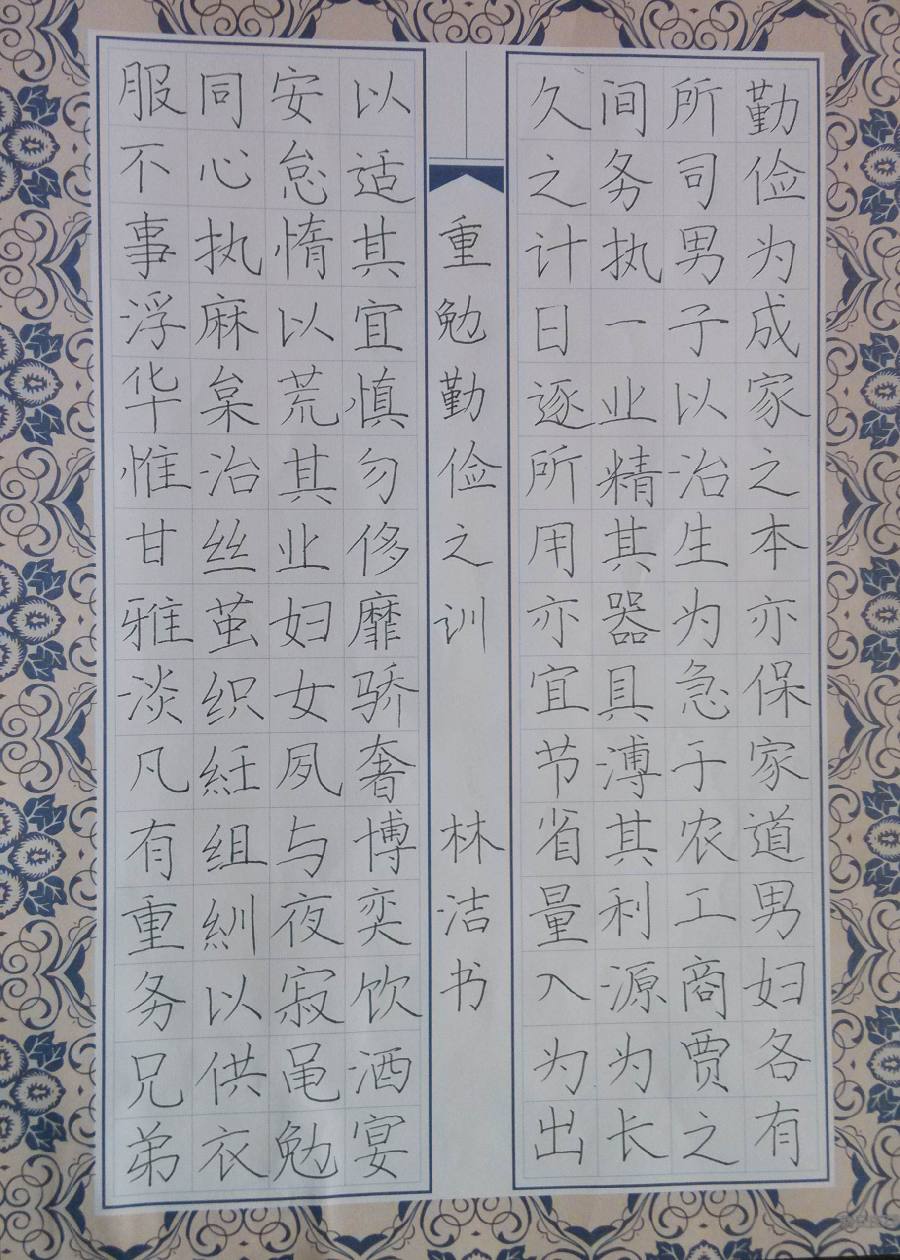 勤俭为成家之本亦保家道男妇各有
所司男子以治生为急于农工商贾之
间务执一业精其器具溥其利源为长
久之计日逐所用亦宜节省量入为出
重勉勤俭之训 林洁书
以适其宜慎勿侈靡骄奢博奕饮酒宴
安怠惰以荒其业妇女夙与夜寂黾勉
同心执麻枲治丝茧织紝组紃以供衣
服不事浮华惟甘雅淡凡有重务兄弟